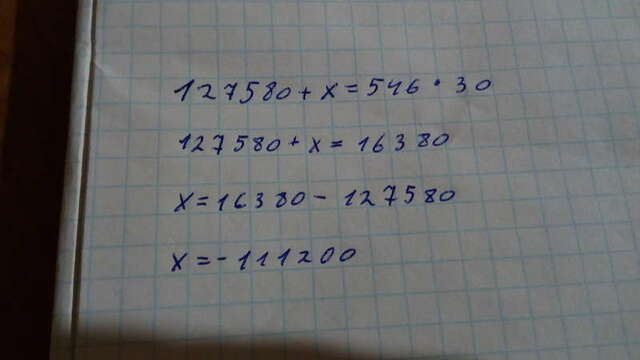 127580 + x = 546 · 30
127580 + x = 16380
x = 16380 - 127580
x = -111200